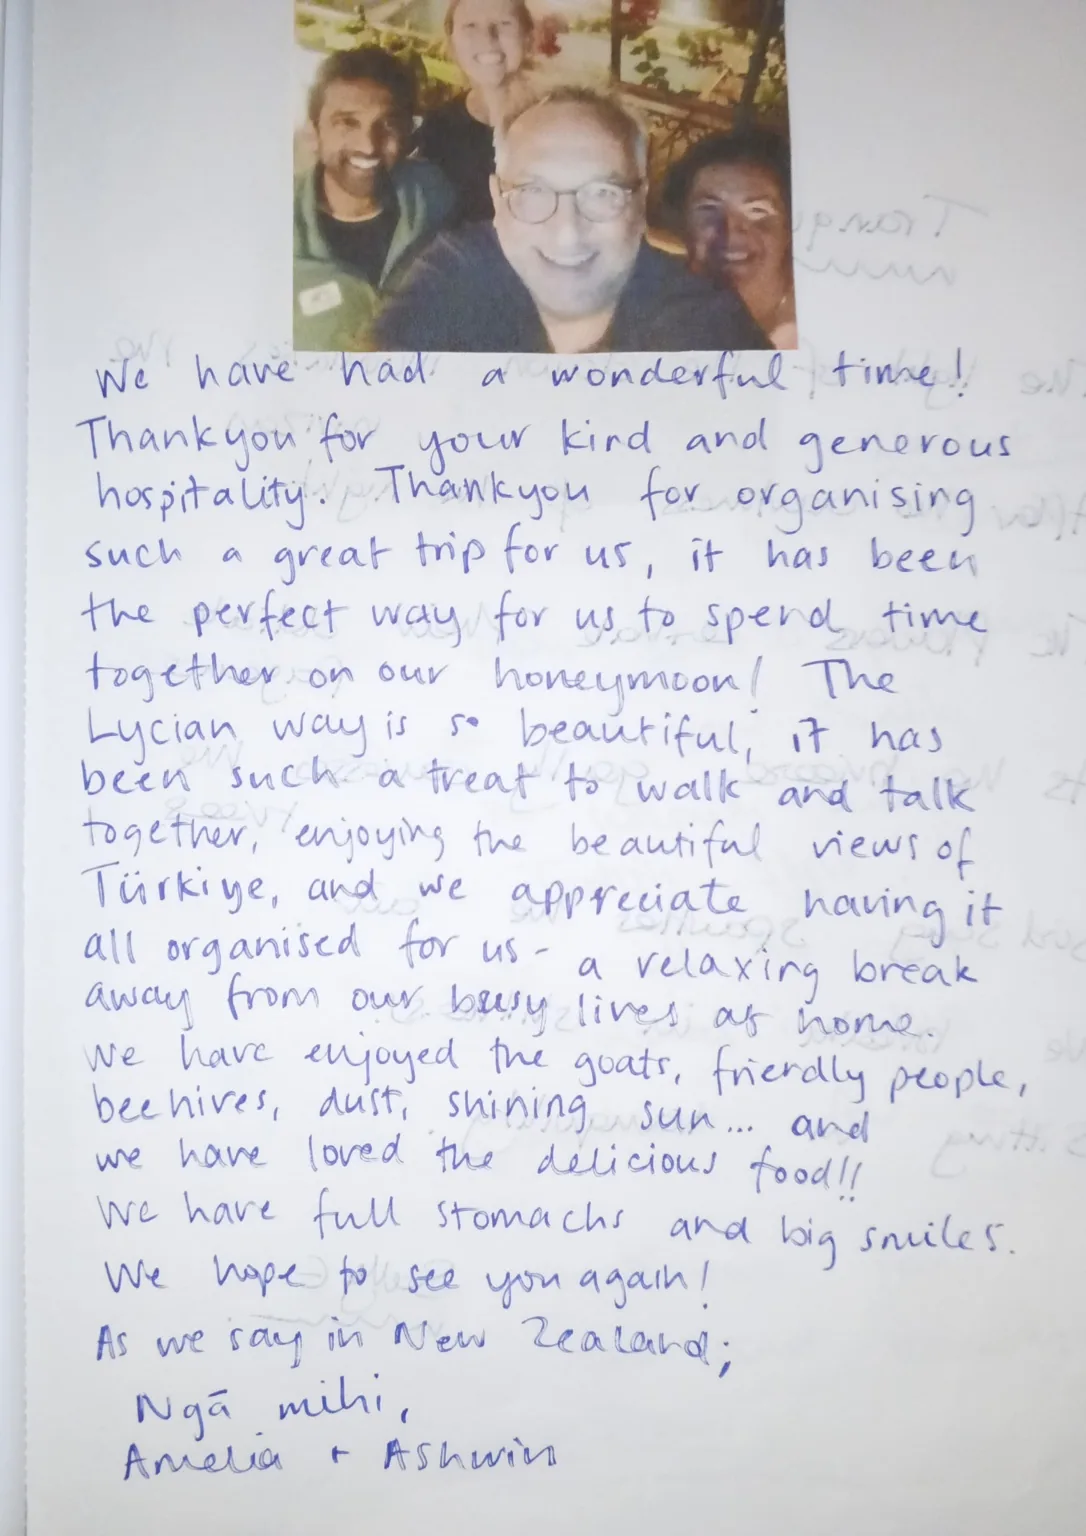 We have had a wonderful time!
Thankyou for your kind and generous
hospitality. Thankyou for organising
such a great trip for us, it has been
the perfect way for us to spend time
together on our honeymoon! The
Lycian way is so beautiful, it has
been such a treat to walk and talk
together, enjoying the beautiful views of
Türkiye, and we appreciate having it
all organised for us - a relaxing break
away from our busy lives at home.
We have enjoyed the goats, friendly people,
beehives, dust, shining sun... and
we have loved the delicious food!!
We have full stomachs and big smiles.
We hope to see you again!
As we say in New Zealand;
Ngā mihi,
Amelia + Ashwin